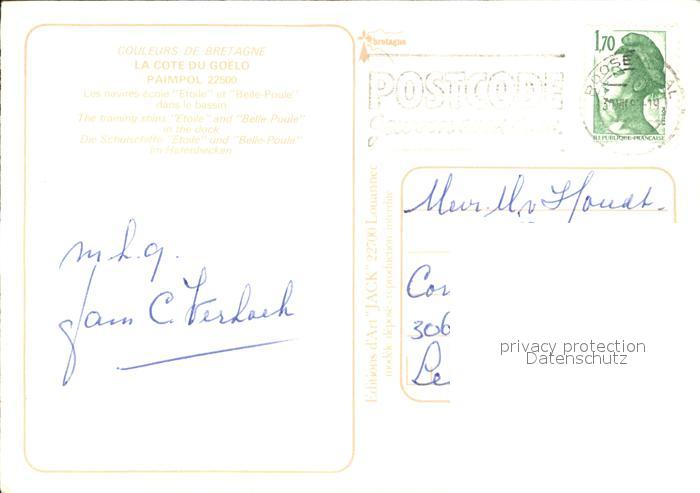 COULEURS DE BRETAGNE
LA COTE DU GOËLO
PAIMPOL 22500
Les navires-école "Etoile" et "Belle-Poule"
dans le bassin
The training ships "Etoile" and "Belle-Poule"
in the dock
Die Schulschiffe "Etoile" und "Belle-Poule"
im Hafenbecken
m.h.g.
Jan C. Verhoek
Editions d'Art "JACK" 22700 Louannec
modèle déposé - reproduction interdite
bretagne
POSTCODE
1,70
REPUBLIQUE FRANÇAISE
ROOSE
Mevr. M. v. Houdt.
Cor
306
Le
privacy protection
Datenschutz